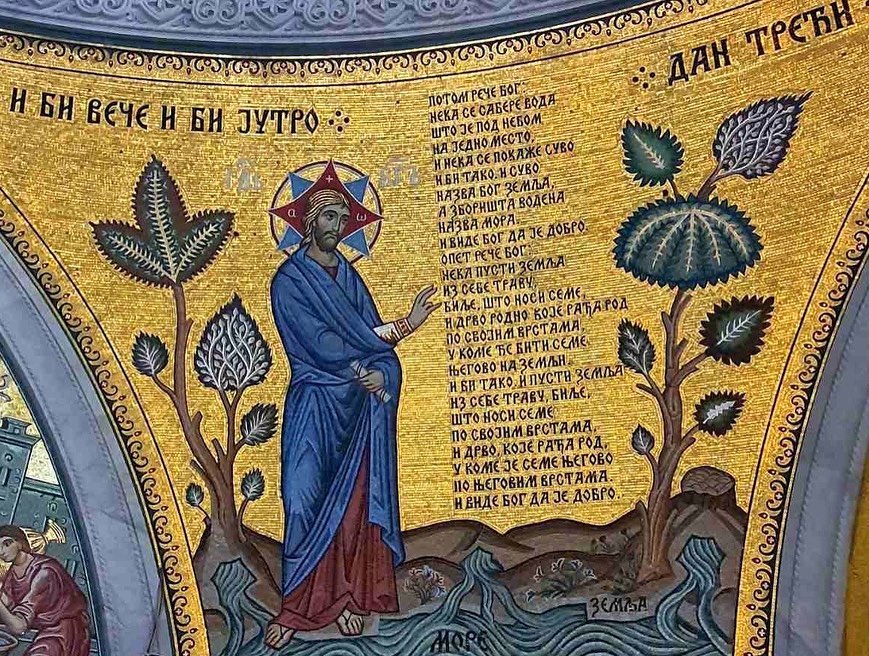 И БИ ВЕЧЕ И БИ ЈУТРО
ДАН ТРЕЋИ
α ω
ПОТОМ РЕЧЕ БОГ:
НЕКА СЕ САБЕРЕ ВОДА
ШТО ЈЕ ПОД НЕБОМ
НА ЈЕДНО МЕСТО,
И НЕКА СЕ ПОКАЖЕ СУВО
И БИ ТАКО. И СУВО
НАЗВА БОГ ЗЕМЉА,
А ЗБОРИШТА ВОДЕНА
НАЗВА МОРА.
И ВИДЕ БОГ ДА ЈЕ ДОБРО.
ОПЕТ РЕЧЕ БОГ:
НЕКА ПУСТИ ЗЕМЉА
ИЗ СЕБЕ ТРАВУ,
БИЉЕ, ШТО НОСИ СЕМЕ,
И ДРВО РОДНО, КОЈЕ РАЂА РОД
ПО СВОЈИМ ВРСТАМА,
У КОМЕ ЋЕ БИТИ СЕМЕ,
ЊЕГОВО НА ЗЕМЉИ.
И БИ ТАКО. И ПУСТИ ЗЕМЉА
ИЗ СЕБЕ ТРАВУ, БИЉЕ,
ШТО НОСИ СЕМЕ
ПО СВОЈИМ ВРСТАМА,
И ДРВО, КОЈЕ РАЂА РОД,
У КОМЕ ЈЕ СЕМЕ ЊЕГОВО
ПО ЊЕГОВИМ ВРСТАМА.
И ВИДЕ БОГ ДА ЈЕ ДОБРО.
ЗЕМЉА
МОРЕ